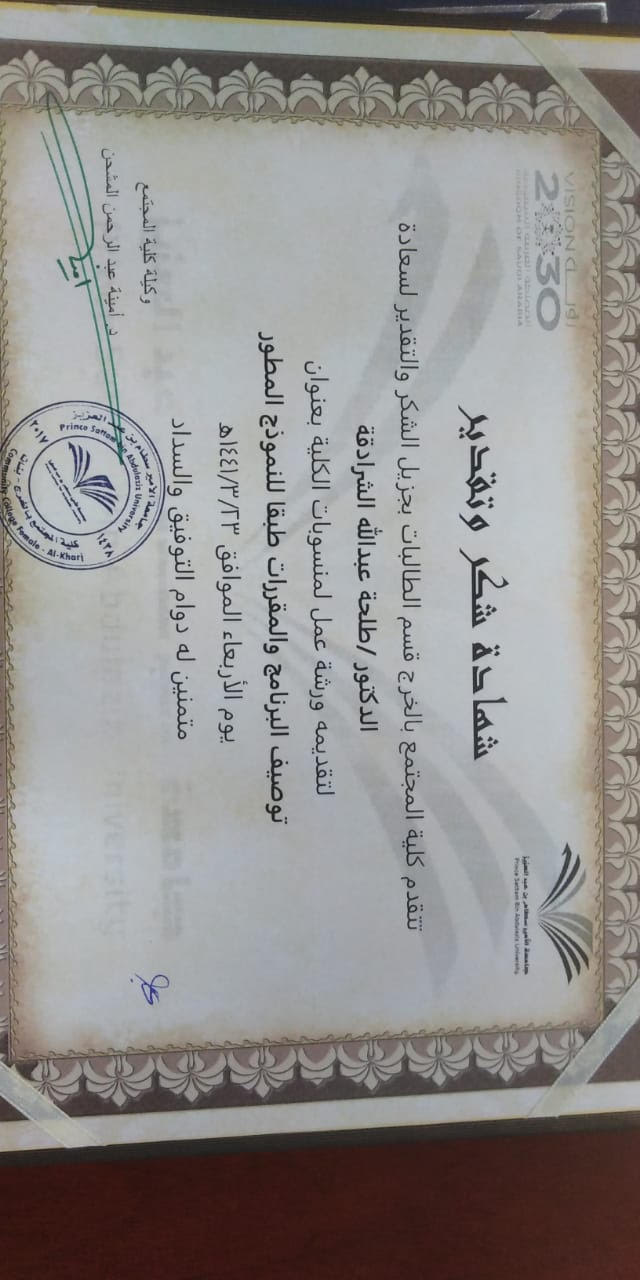 VISION رؤية
2030
المملكة العربية السعودية
KINGDOM OF SAUDI ARABIA
جامعة الأمير سطام بن عبد العزيز
Prince Sattam Bin Abdulaziz University
شهادة شكر وتقدير
تتقدم كلية المجتمع بالخرج قسم الطالبات بجزيل الشكر والتقدير لسعادة
الدكتور /طلحة عبدالله الشرادقة
لتقديمه ورشة عمل لمنسوبات الكلية بعنوان
توصيف البرنامج والمقررات طبقا للنموذج المطور
يوم الأربعاء الموافق ١٤٤١/٣/٢٣هـ
متمنين له دوام التوفيق والسداد
وكيلة كلية المجتمع
د. أمينة عبد الرحمن المشحن
جامعة الأمير سطام بن عبد العزيز
Prince Sattam Bin Abdulaziz University
١٤٣٨
٢٠١٧
كلية المجتمع بالخرج - بنات
Community College Female - Al-Kharj